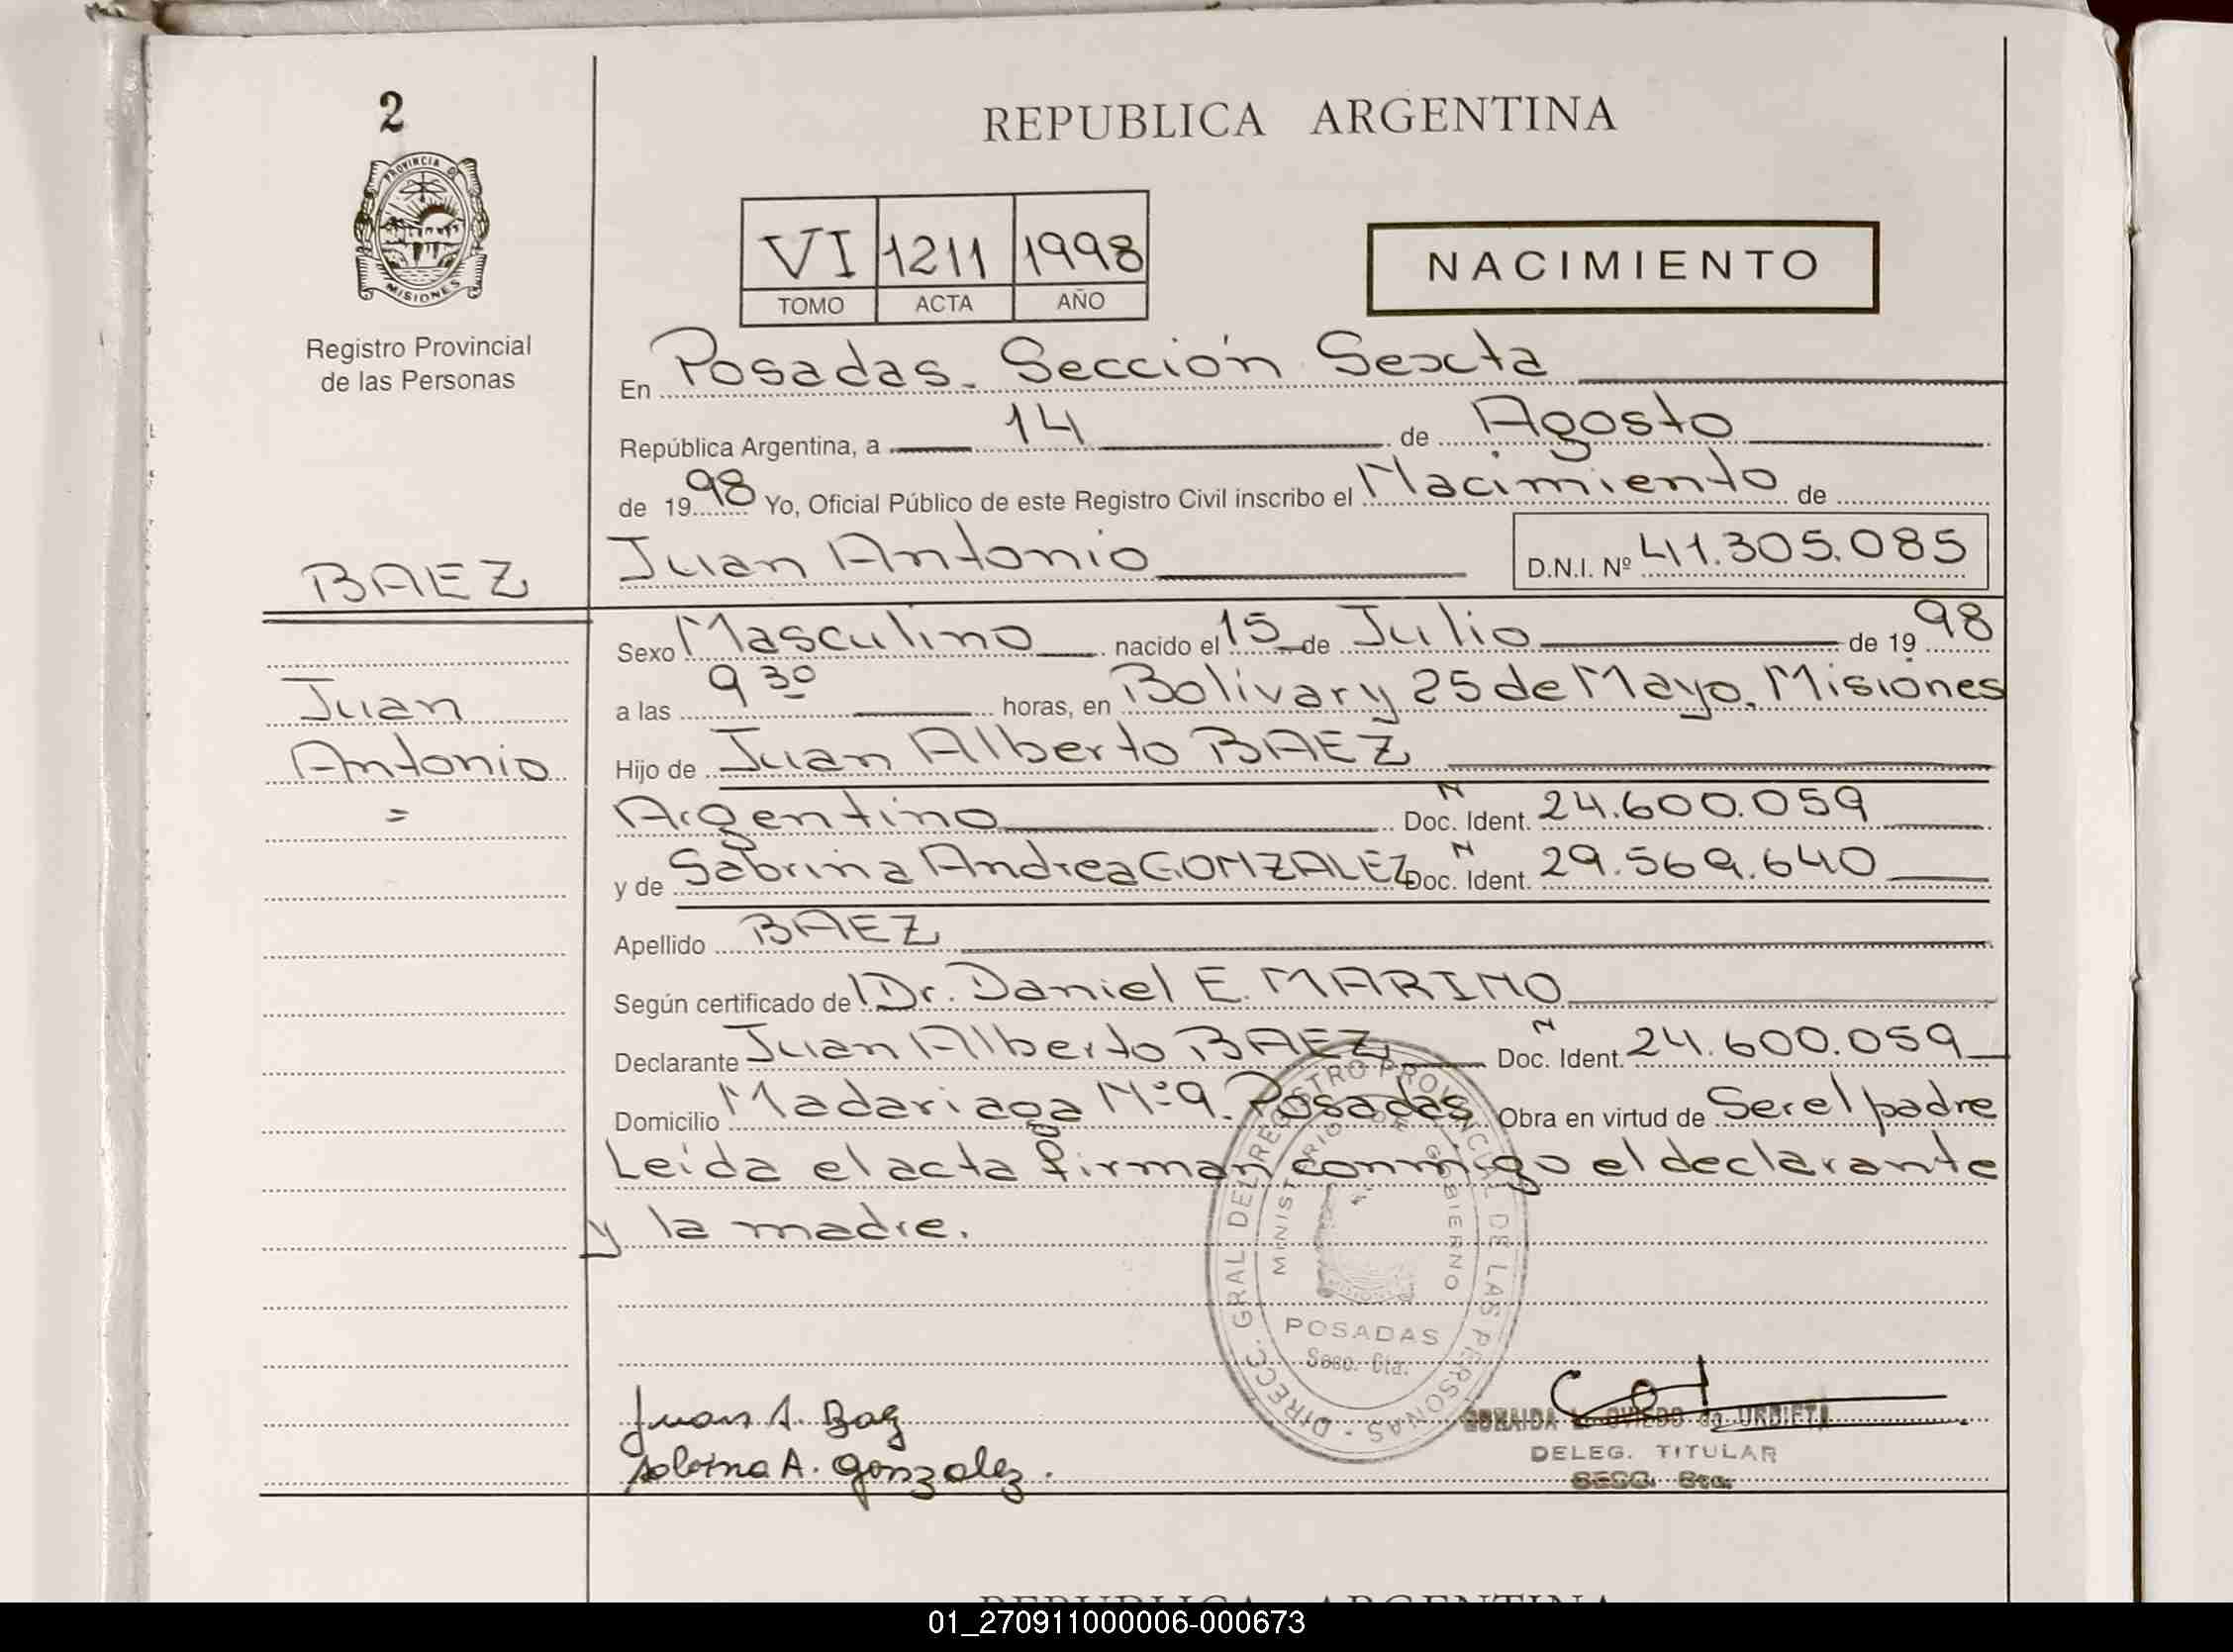 2
PROVINCIA DE
MISIONES
Registro Provincial
de las Personas
REPUBLICA ARGENTINA
VI 1211 1998
TOMO ACTA AÑO
NACIMIENTO
En Posadas. Sección Sexta
República Argentina, a 14 de Agosto
de 1998 Yo, Oficial Público de este Registro Civil inscribo el Nacimiento de
BAEZ
Juan Antonio D.N.I. Nº 41.305.085
Sexo Masculino nacido el 15 de Julio de 1998
Juan
a las 9 30 horas, en Bolivar y 25 de Mayo. Misiones
Antonio
=
Hijo de Juan Alberto BAEZ
Argentino N Doc. Ident. 24.600.059
y de Sabrina Andrea GONZALEZ N Doc. Ident. 29.569.640
Apellido BAEZ
Según certificado de Dr. Daniel E. MARINO
Declarante Juan Alberto BAEZ N Doc. Ident. 24.600.059
Domicilio Madariaga Nº 9. Posadas Obra en virtud de Ser el padre
Leída el acta firman conmigo el declarante
y la madre.
DIREC. GRAL DEL REGISTRO PROVINCIAL DE LAS PERSONAS
MINISTERIO DE GOBIERNO
POSADAS
Secc. 6ta.
Juan A. Baez
Sabrina A. Gonzalez.
OVIEDO de URBIETA
DELEG. TITULAR
SECC. 6ta.
REPUBLICA ARGENTINA
01_270911000006-000673